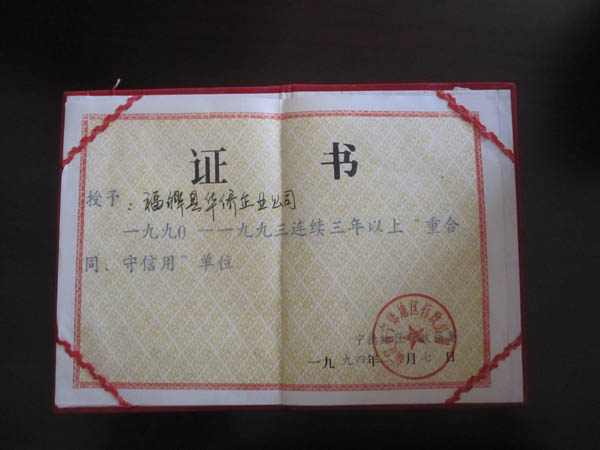 证 书
授予:福鼎县华侨企业公司
一九九0 —一九九三连续三年以上“重合
同、守信用”单位
宁德地区行政公署
一九九四年 月七日